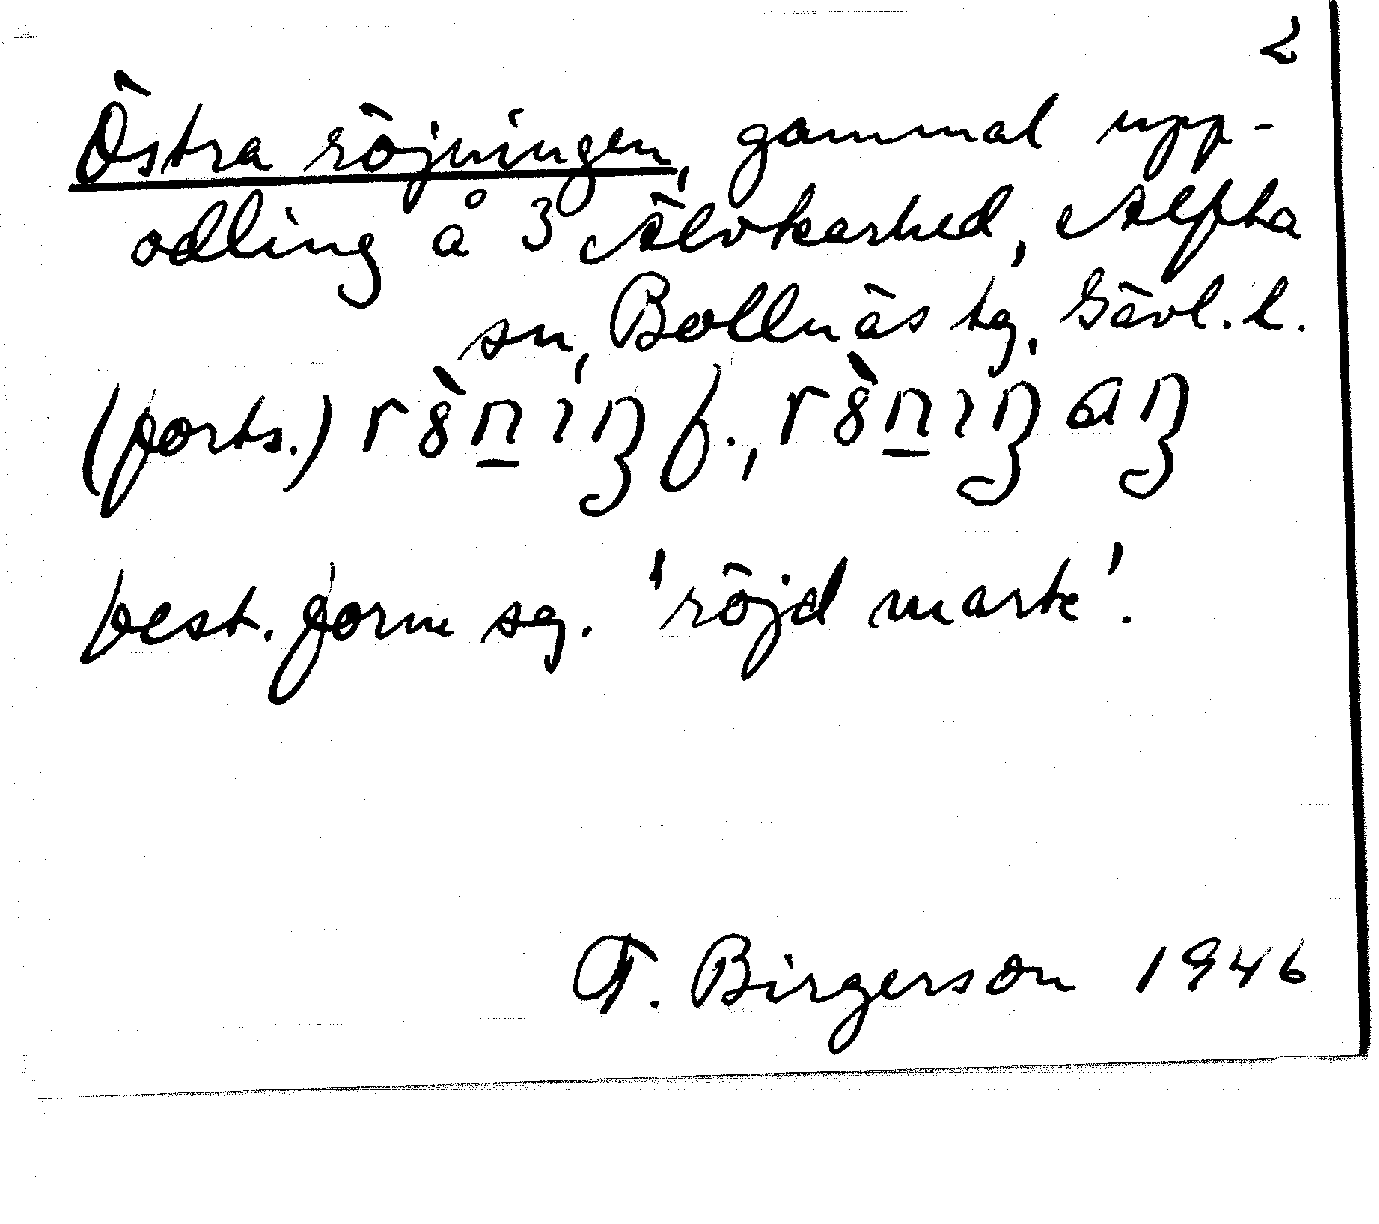 2
Östra röjningen, gammal upp-
odling å 3 Älvkarhed, Alfta
sn, Bollnäs tg, Gävl. l.
(forts.) r8̀n̲ıŋ f., r8̀n̲ıŋaŋ
best. form sg. 'röjd mark'.
F. Birgerson 1946